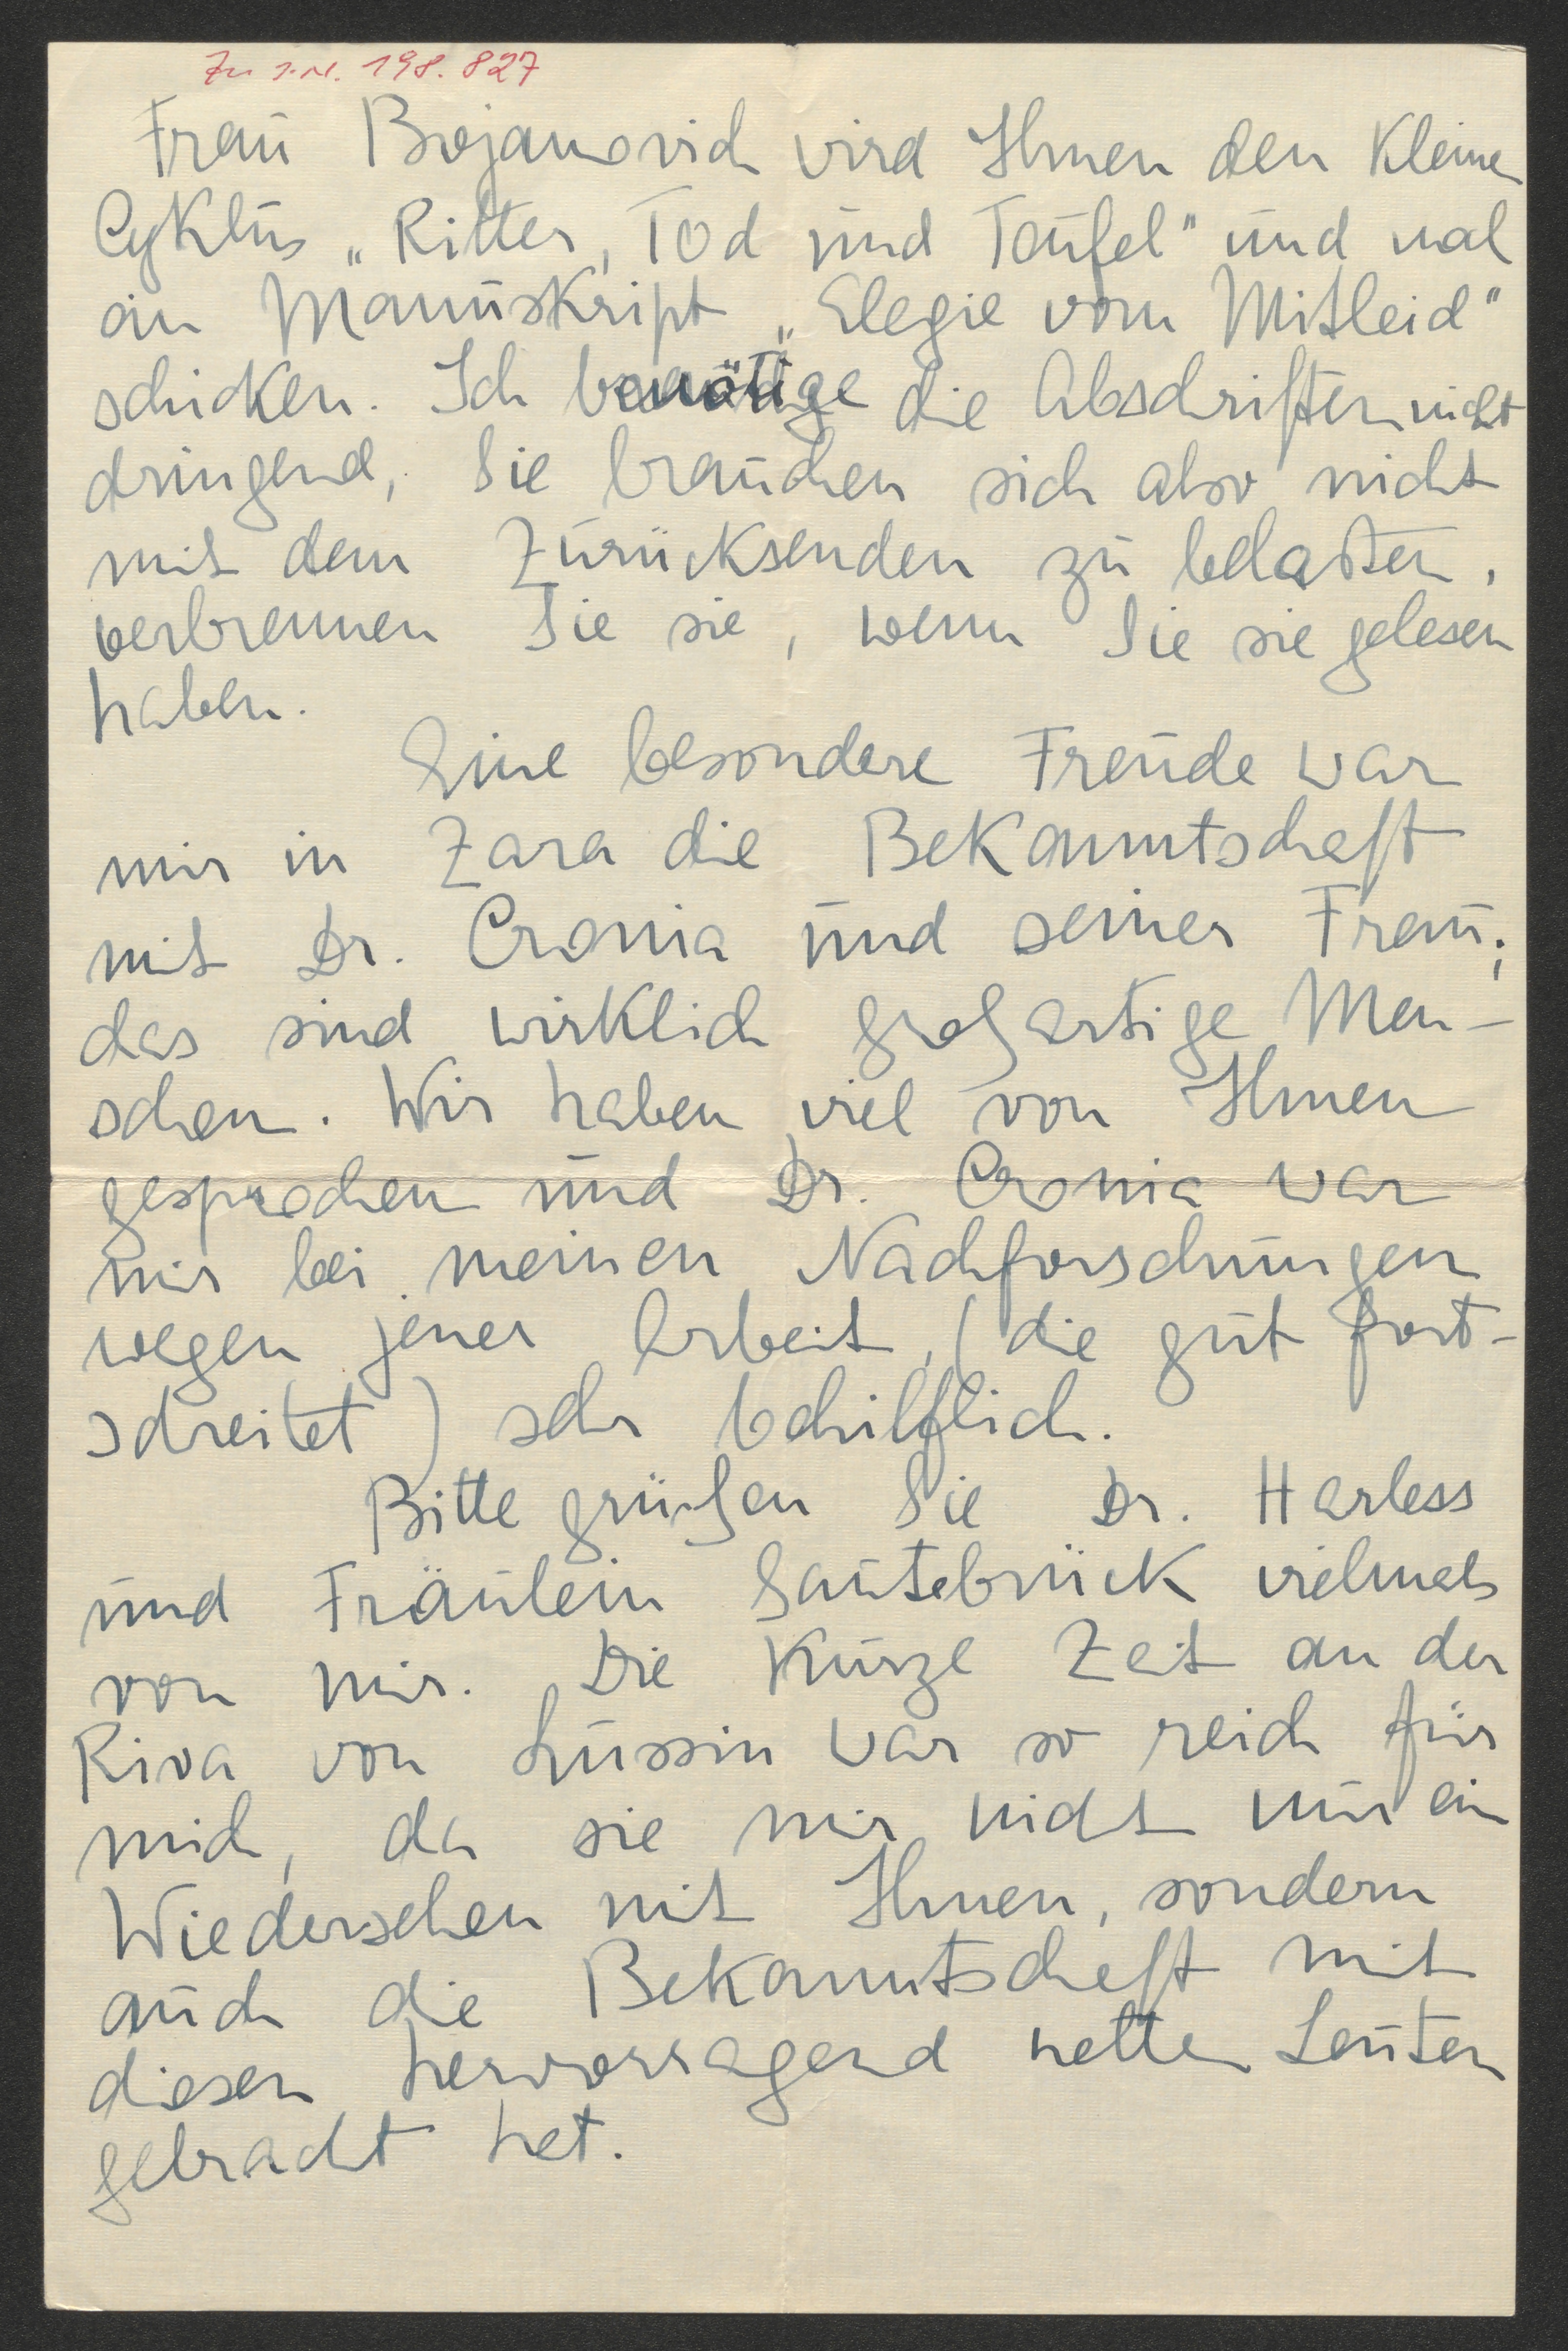 Zu I.N. 198.827
Frau Bojanovich wird Ihnen den kleinen
Cyklus „Ritter, Tod und Teufel" und mal
ein Manuskript „Elegie vom Mitleid"
schicken. Ich benötige die Abschriften nicht
dringend, Sie brauchen sich also nicht
mit dem Zurücksenden zu belasten,
verbrennen Sie sie, wenn Sie sie gelesen
haben.
Eine besondere Freude war
mir in Zara die Bekanntschaft
mit Dr. Cronia und seiner Frau;
das sind wirklich großartige Men-
schen. Wir haben viel von Ihnen
gesprochen und Dr. Cronia war
mir bei meinen Nachforschungen
wegen jener Arbeit, (die gut fort-
schreitet) sehr behilflich.
Bitte grüßen Sie Dr. Harless
und Fräulein Gautebrück vielmals
von mir. Die kurze Zeit an der
Riva von Lussin war so reich für
mich, da sie mir nicht nur ein
Wiedersehen mit Ihnen, sondern
auch die Bekanntschaft mit
diesen hervorragend netten Leuten
gebracht hat.